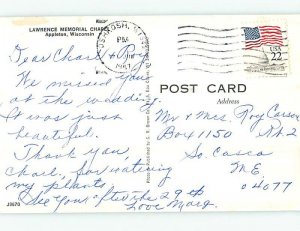 LAWRENCE MEMORIAL CHAPEL
Appleton, Wisconsin
OSHKOSH,
PM
1987
USA
22
Dear Charl & Roy
We missed you
at the wedding.
It was just
beautiful.
Thank you
Charl, for watering
my plants.
See you after the 29th
Love Marg.
POST CARD
Address
Mr & Mrs. Roy Carson
Box 1150 Rt 2
So. Casco
ME
04077